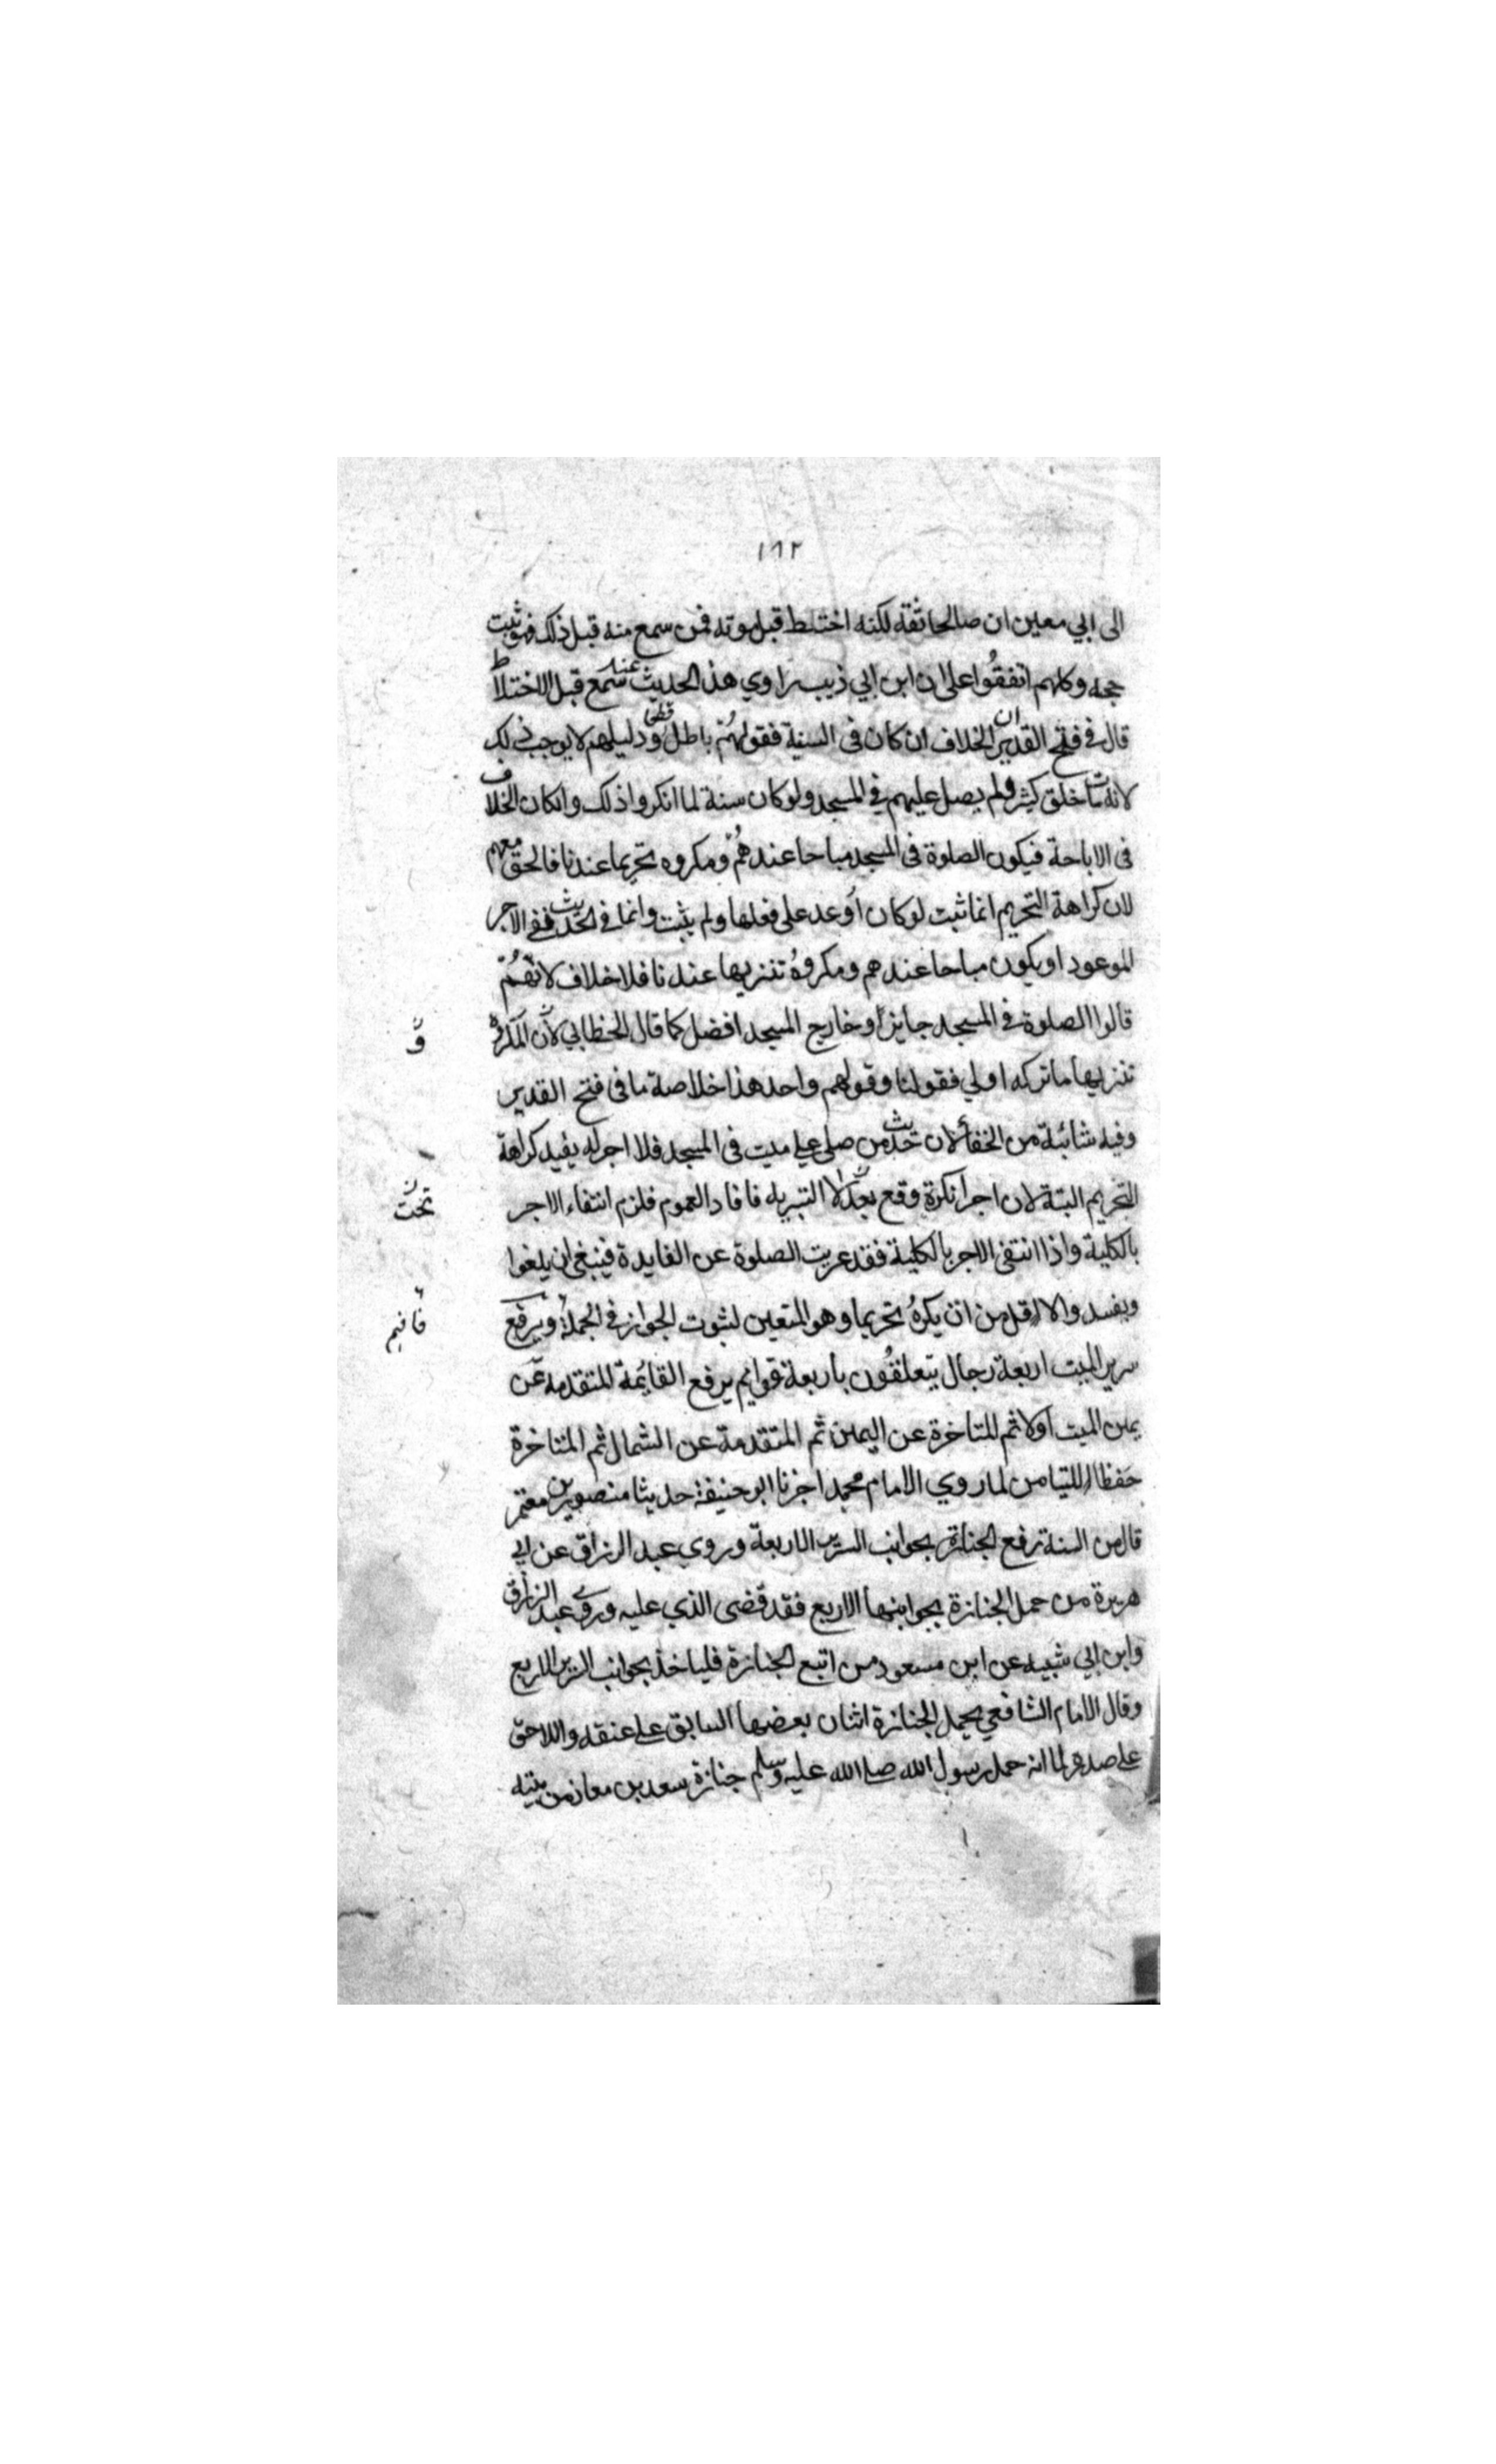 ١٦٢
الى ابي معين ان صالحا ثقة لكنه اختلط قبل موته فمن سمع منه قبل ذلك فهو ثبت
حجه وكلهم اتفقوا على ان ابن ابي ذيب راوي هذ الحديث عنه سمع قبل الاختلاط
قال في فتح القدير ان الخلاف ان كان فى السنية فقولهم باطل قطعى ودليلهم لا يوجب ذلك
لانه مات خلق كثير ولم يصل عليهم في المسجد ولو كان سنة لما انكروا ذلك وانكان الخلاف
فى الاباحة فيكون الصلوة فى المسجد مباحا عندهم ومكروه تحريما عندنا فالحق معهم
لان كراهة التحريم انما ثبت لو كان اوعد على فعلها ولم يثبت وانما في الحديث ففى الاجر
الموعود او يكون مباحا عندهم ومكروه تنزيها عندنا فلا خلاف لانهم
قالوا الصلوة في المسجد جايز او خارج المسجد افضل كما قال الخطابي لان المكروه
و
تنزيها ما تركه اولي فقولنا وقولهم واحد هذا خلاصة ما فى فتح القدير
وفيه شائبة من الخفأ لان حديث من صلى علي ميت فى المسجد فلا اجر له يفيد كراهة
التحريم البتة لان اجرا نكرة وقع بعد لا التبريه فافاد العموم فلزم انتفاء الاجر
تحت
بالكلية واذا انتفى الاجر بالكلية فقد عريت الصلوة عن الفايدة فينبغى ان يلغوا
ويفسد والا اقل من ان يكره تحريما وهو المتعين لثبوت الجواز في الجملة ويرفع
فافهم
سرير الميت اربعة رجال يتعلقون باربعة قوايم يرفع القائمة المتقدمه عن
يمين الميت اولا ثم المتاخرة عن اليمين ثم المتقدمة عن الشمال ثم المتاخرة
حفظا للتيامن لما روي الامام محمد اخبرنا ابو حنيفة حديثا منصور بن معتمر
قال من السنة رفع الجنازة بجوانب السرير الاربعة وروي عبد الرزاق عن ابي
هريرة من حمل الجنازة بجوابنها الاربع فقد قضى الذي عليه وروى عبد الرزاق
وابن ابي شيبه عن ابن مسعود من اتبع الجنازة فلياخذ بجوانب السرير الاربع
وقال الامام الشافعي يحمل الجنازة اثنان بعضها السابق على عنقه واللاحق
على صدره لما انه حمل رسول الله صلى الله عليه وسلم جنازة سعد بن معاذ من بيته